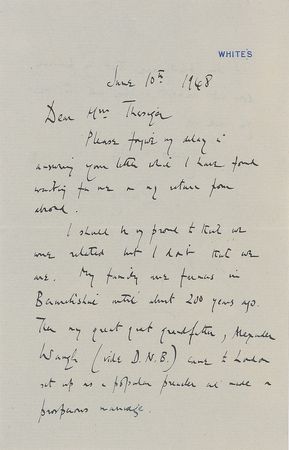 WHITE'S
June 10th 1948
Dear Mrs
Please forgive my delay in
answering your letter which I have found
waiting for me on my return from
abroad.
I should be very proud to that we
were related but I don't that we
are. My family were farmers in
Berwickshire until about 200 years ago.
Then my great great grandfather, Alexander
Waugh (vide D.N.B.) came to London
set up as a popular preacher and made a
prosperous marriage.